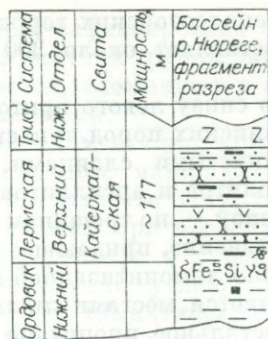 Система
Отдел
Свита
Мощность, м
Бассейн
р. Нюрегс,
фрагмент
разреза
Триас
Ниж.
Пермская
Верхний
Кайеркан-
ская
117
Ордовик
Нижний
Fe Si